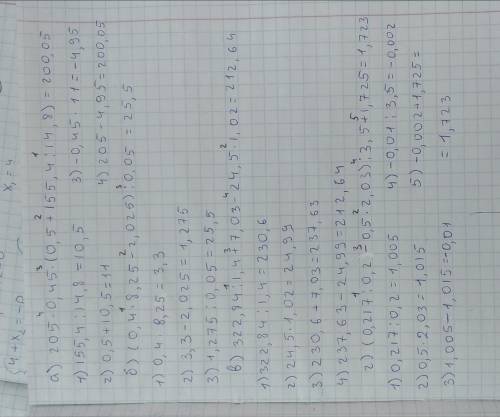 x₁ = 4
а) 205-0,45·(0,5+155,4:14,8)=200,05
1) 155,4:14,8=10,5 3) -0,45·11=-4,95
2) 0,5+10,5=11 4) 205-4,95=200,05
б) (0,4·8,25-2,025):0,05=25,5
1) 0,4·8,25=3,3
2) 3,3-2,025=1,275
3) 1,275:0,05=25,5
в) 322,84:1,4+7,03-24,5·1,02=212,64
1) 322,84:1,4=230,6
2) 24,5·1,02=24,99
3) 230,6+7,03=237,63
4) 237,63-24,99=212,64
г) (0,217:0,2-0,5·2,03):3,5+1,725=1,723
1) 0,217:0,2=1,005 4) -0,01:3,5=-0,002
2) 0,5·2,03=1,015 5) -0,002+1,725=
3) 1,005-1,015=-0,01 =1,723